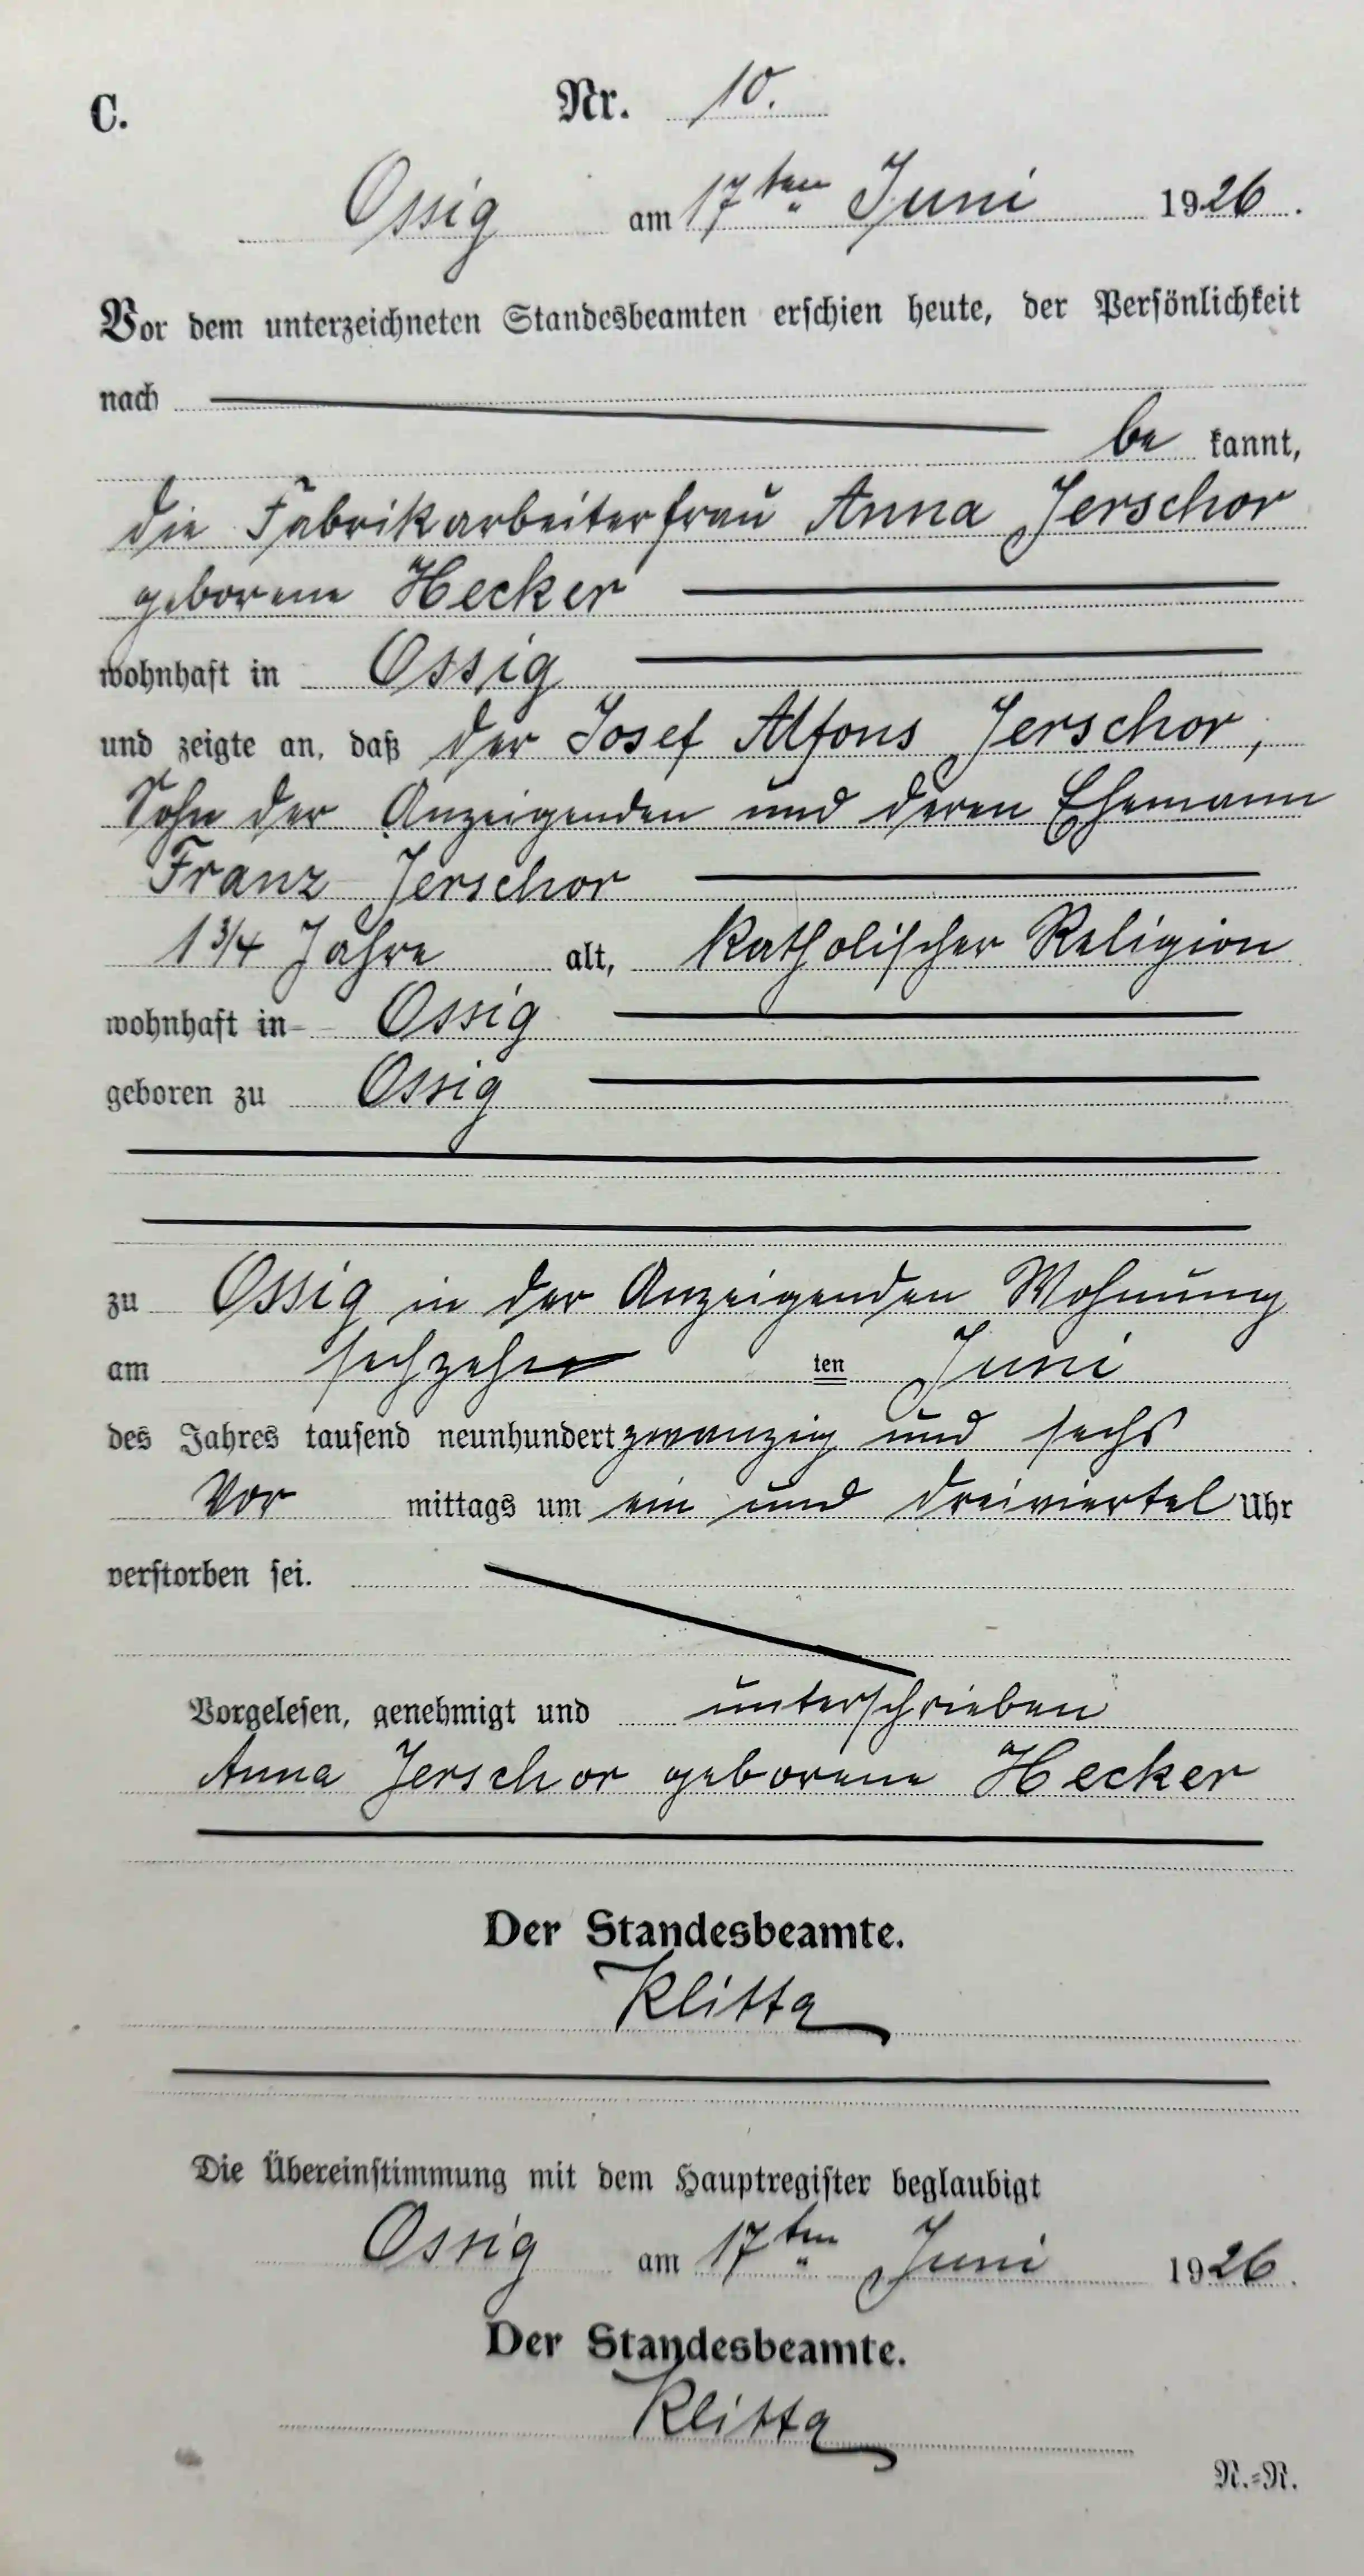 C. Nr. 10.
Ossig am 17ten Juni 1926.
Vor dem unterzeichneten Standesbeamten erschien heute, der Persönlichkeit
nach
be kannt,
die Fabrikarbeiterfrau Anna Jerschor
geborene Hecker
wohnhaft in Ossig
und zeigte an, daß der Josef Alfons Jerschor,
Sohn der Anzeigenden und deren Ehemann
Franz Jerschor
1 3/4 Jahre alt, katholischer Religion
wohnhaft in Ossig
geboren zu Ossig
zu Ossig in der Anzeigenden Wohnung
am sechzehn ten Juni
des Jahres tausend neunhundert zwanzig und sechs
Vor mittags um ein und dreiviertel Uhr
verstorben sei.
Vorgelesen, genehmigt und unterschrieben
Anna Jerschor geborene Hecker
Der Standesbeamte.
Klitta
Die Übereinstimmung mit dem Hauptregister beglaubigt
Ossig am 17ten Juni 1926.
Der Standesbeamte.
Klitta
N.=R.